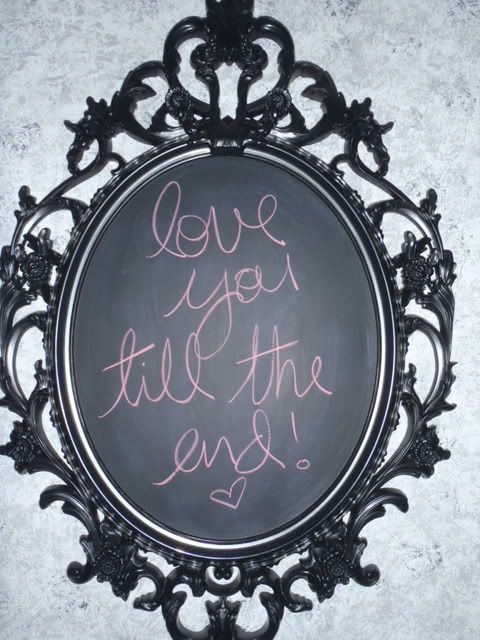 love
you
till the
end!